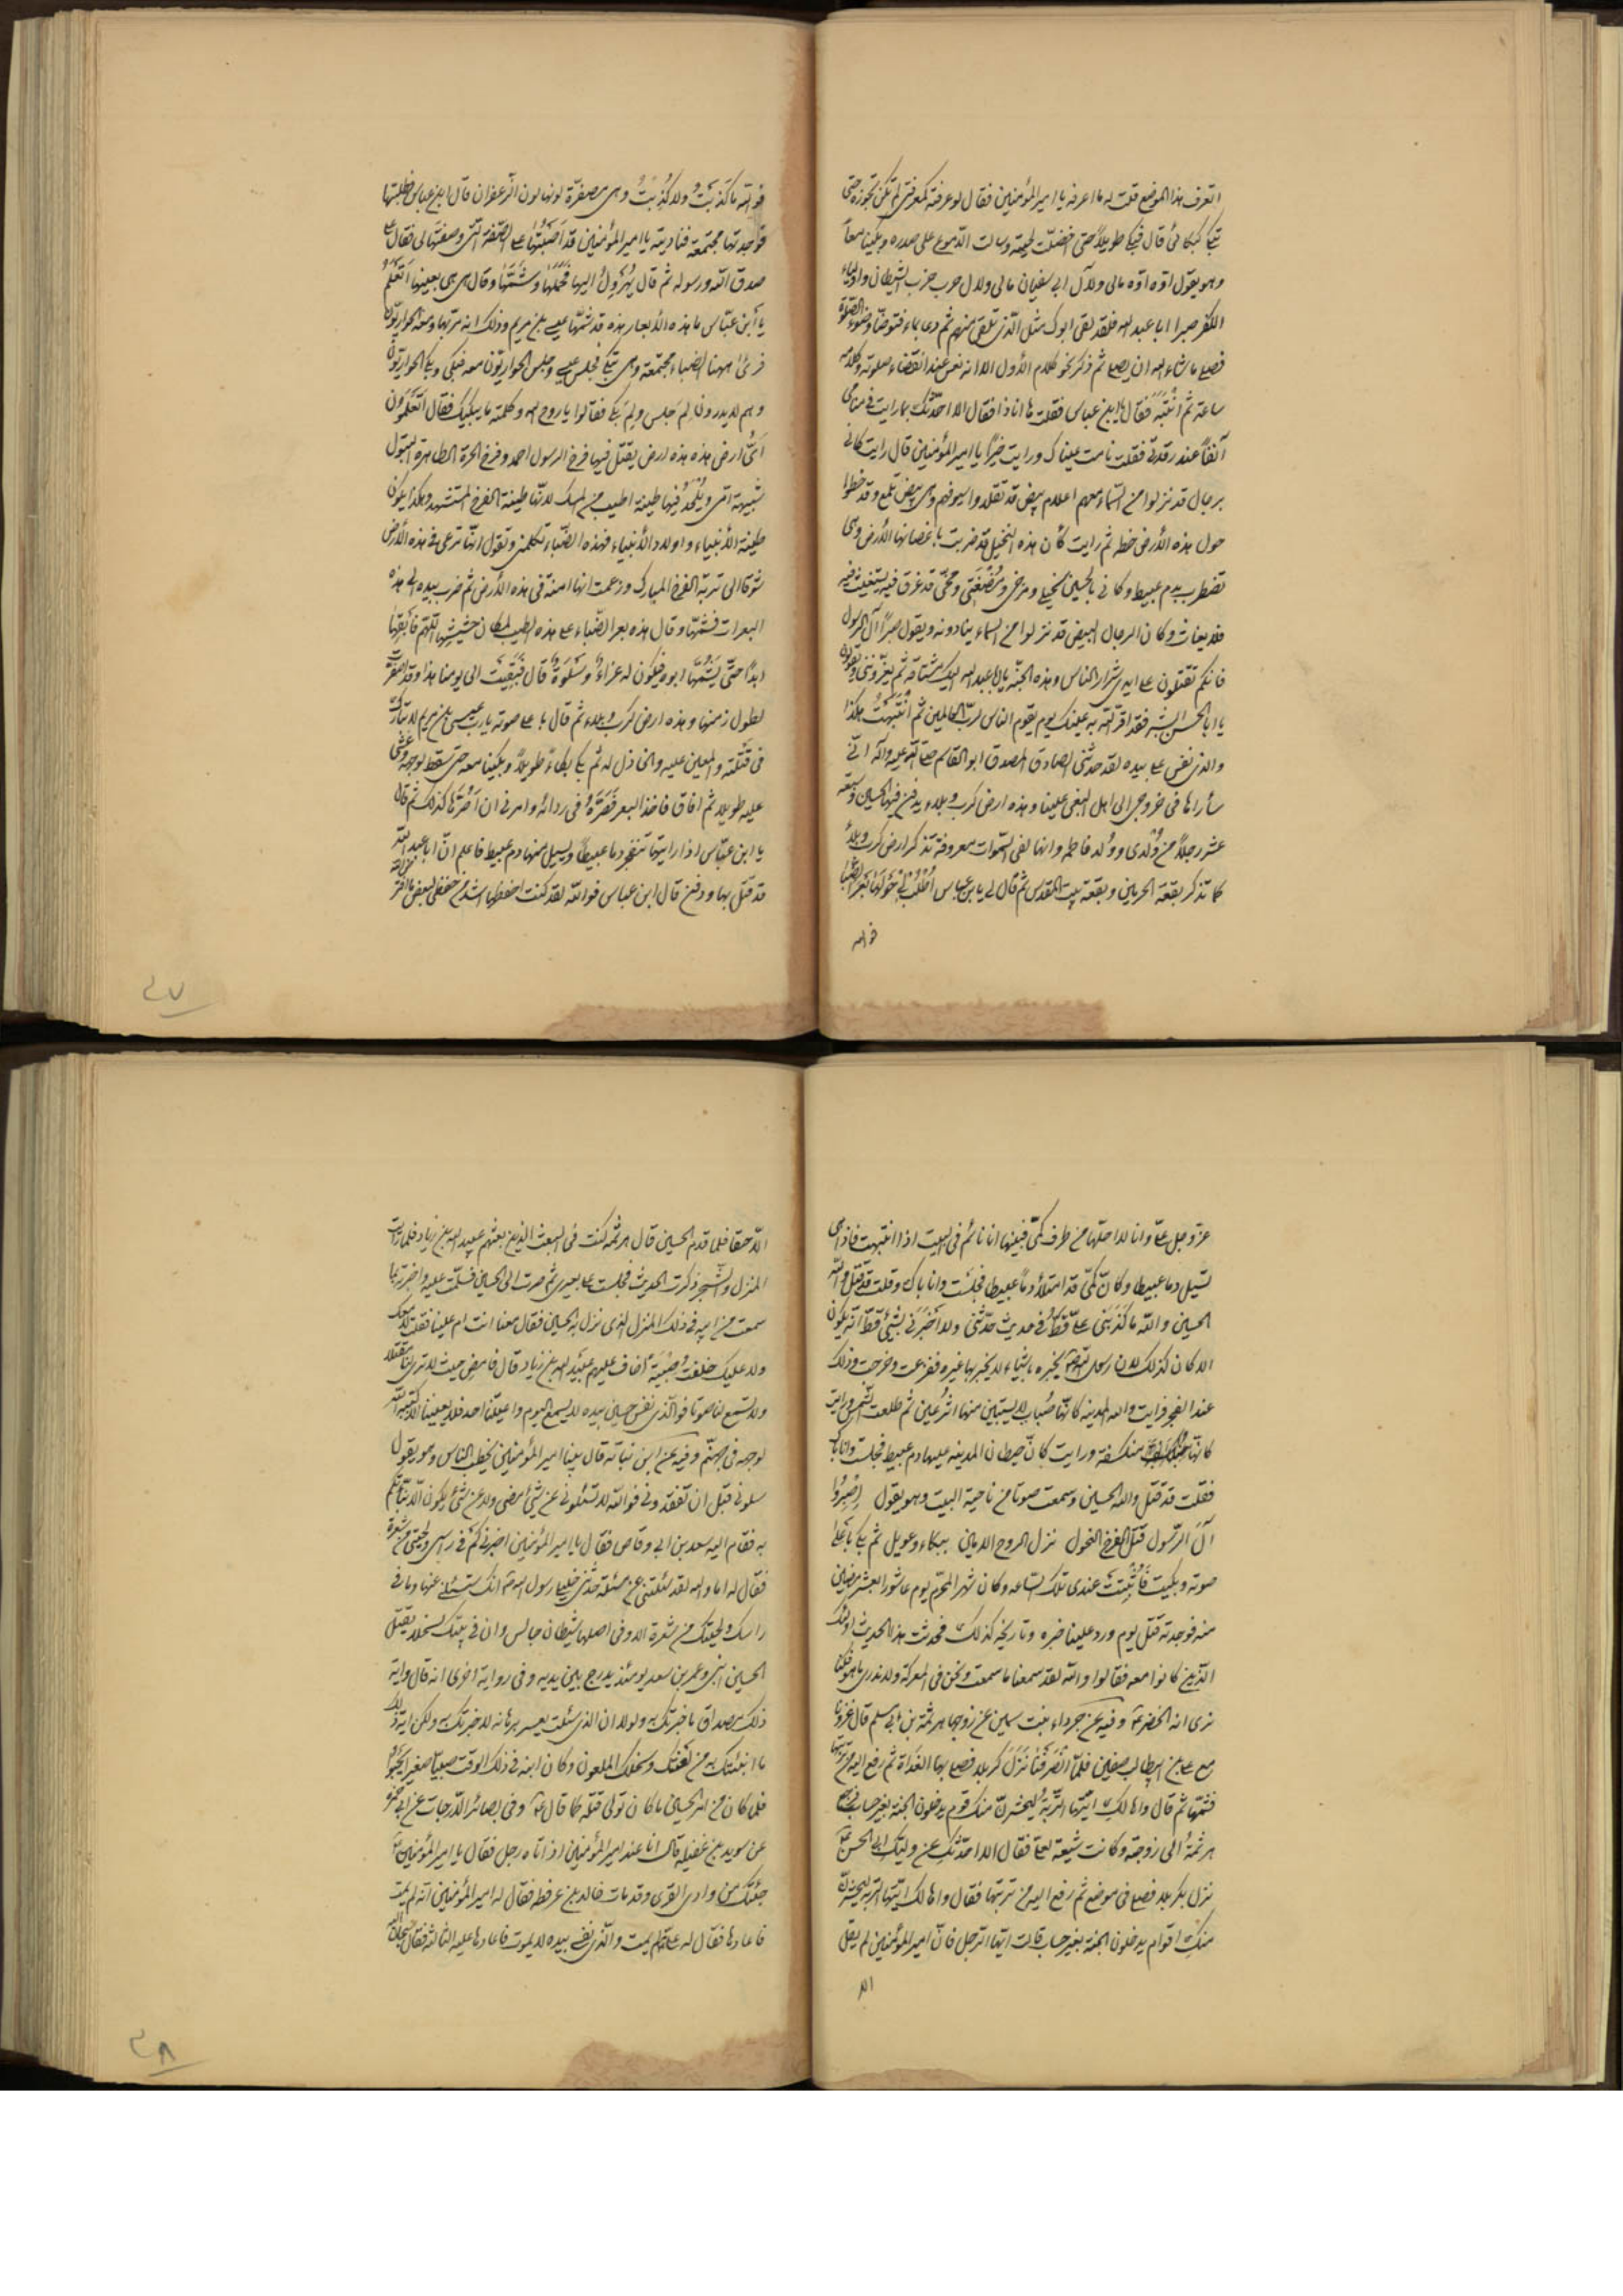 اتعرف هذا الموضع قلت له ما اعرفه يا امير المؤمنين فقال لو عرفته كمعرفتى لم تكن تجوزه حتى
تبكى كبكائى قال فبكى طويلاً حتى اخضلّت لحيته وسالت الدّموع على صدره وبكينا معاً
وهو يقول اوّه اوّه مالى ولآل ابى سفيان مالى ولال حرب حزب الشيطان واولياء
الكفر صبرا ابا عبد الله فلقد لقى ابوك مثل الّذى تلقى منهم ثم دعى بماء فتوضّا وضوء الصّلوة
فصلى ما شاء الله ان يصلى ثم ذكر نحو كلام الأول الا انه نعس عند انقضاء صلوته وكلامه
ساعة ثم انتَبَه فقال يا ابن عباس فقلت ها انا ذا فقال الا احدّثك بما رايت فى منامى
آنفاً عند رقدتى فقلت نامت عيناك ورايت خيراً يا امير المؤمنين قال رايت كانّى
برجال قد نزلوا من السّماء معهم اعلام بيض قد تقلدوا سيوفهم وهى بيض تلمع وقد خطوا
حول هذه الأرض خطه ثم رايت كأن هذه النخيل قد ضربت باغصانها الأرض وهى
تضطرب بدم عبيط وكانى بالحسين نجلى وفرخى ومُضْغَتى ومخّى قد غرق فيه يستغيث فيه
فلا يغاث وكان الرجال البيض قد نزلوا من السماء ينادونه ويقول صبراً آل الرسول
فانكم تقتلون على ايدى شرار الناس وهذه الجنّة يا ابا عبد الله اليك مشتاقة ثم يعزّوننى ويقولون
يا ابا الحسن ابشر فقد اقرّ الله به عينك يوم يقوم الناس لربّ العالمين ثم انتَبَهْتُ هكذا
والذى نفس على بيده لقد حدثنى الصادق المصدق ابو القاسم صلى الله عليه وآله انّى
سأراها فى خروجى الى اهل البغى علينا وهذه ارض كرب وبلاء يدفن فيها الحسين وسبعة
عشر رجلاً من وُلدى وولد فاطمه وانها لفى السّموات معروفة تذكر ارض كرب وبلاء
كما تذكر بقعة الحرمين وبقعة بيت المقدس ثم قال لى يا بن عباس اُطْلُب لى حَوْلَها بَعَرَ الظِّبا
فوالله
فوالله ما كَذَبتُ ولا كُذِبتُ وهى مصفرّة لونها لون الزّعفران قال ابن عباس فطلبتها
فوجدتها مجتمعة فناديته يا امير المؤمنين قد اَصَبْتُها على الصّفة الّتى وصفتها لى فقال على
صدق الله ورسوله ثم قال يُهَرْوِلُ اليها فحَمَلَها وشمّها وقال هى هى بعينها اَتَعْلَمُ
يا ابن عبّاس ما هذه الأبعار هذه قد شمّها عيسى بن مريم وذلك انه مرّ بها ومعه الحواريّون
فرئى ههنا الظباء مجتمعة وهى تبكى فجلس عيسى وجلس الحواريّون معه فبكى وبكى الحواريّون
وهم لا يدرون لِمَ جلس ولِمَ بكى فقالوا يا روح الله وكلمته ما يبكيك فقال اتَعْلَمون
اىُّ ارض هذه هذه ارض يقتل فيها فرخ الرسول احمد وفرخ الحرة الطاهرة البتول
شبيهة امّى ويُلْحَدُ فيها طينة اطيب من المسك لانّها طينة الفرخ المستشهد وهكذا يكون
طينة الأنبياء واولاد الأنبياء فهذه الظّباء تكلمنى وتقول انّها ترعى فى هذه الأرض
شوقا الى تربة الفرخ المبارك وزعمت انها امنة فى هذه الأرض ثم ضرب بيده الى هذه
البعرات فشمّها وقال هذه بعر الظّباء على هذه الطيب لمكان حشيشها اللّهم فابقها
ابداً حتّى يَشُمَّها ابوه فيكون له عزاءً وسَلْوَةً قال فبَقِيَتْ الى يومنا هذا وقد اصفرّت
لطول زمنها وهذه ارض كرب وبلاء ثم قال باعلى صوته يا رب عيسى بن مريم لا تبارك
فى قَتَلَته والمعين عليه والخاذل له ثم بكى بكاءً طويلاً وبكينا معه حتى سقط لوجهه وغُشى
عليه طويلا ثم افاق فاخذ البعر فَصَرَّهُ فى ردائه وامرنى ان اَصُرَّها كذلك ثم قال
يا ابن عبّاس اذا رايتها تنفجر دما عبيطاً ويسيل منها دم عبيط فاعلم انّ ابا عبد الله
قد قتل بها ودفن قال ابن عباس فوالله لقد كنت احفظها اشد من حفظى لبعض ما افترض الله
٤٧
عزّ وجل علىّ وانا لا احلّها من طرف كمّى فبينما انا نائم فى البيت اذا انتبهت فاذا هى
تسيل دما عبيطا وكانّ كمّى قد امتلأ دماً عبيطا فجلست وانا باك وقلت قد قتل والله
الحسين والله ما كذَبَنى علىّ قطّ فى حديث حدّثنى ولا اخبَرَنى بشىء قطّ انّه يكون
الا كان كذلك لان رسول الله ص يخبره باشياء لا يخبر بها غيره ففزعت وخرجت وذلك
عند الفجر فرايت والله المدينه كانّها ضَباب لا يستبين منها اثر عين ثم طلعت الشمس ورايت
كانّها منكسفة ورايت كانّ حيطان المدينه عليها دم عبيط فجلست وانا باك
فقلت قد قتل والله الحسين وسمعت صوتا من ناحية البيت وهو يقول اِصْبِرُوا
آلَ الرّسول قتل الفرخ النحول نزل الروح الامين ببكاء وعويل ثم بكى باعلى
صوته وبكيت فاُثْبِتَتْ عندى تلك الساعه وكان شهر المحرّم يوم عاشورا لعشر مضين
منه فوجدته قتل يوم ورد علينا خبره وتاريخه كذلك فحدثت هذا الحديث اولئك
الّذين كانوا معه فقالوا والله لقد سمعنا ما سمعت ونحن فى المعركة ولا ندرى ما هو فكنّا
نرى انه الخضر ع وفيه عن جرداء بنت سمين عن زوجها هرثمة بن ابى مسلم قال غزونا
مع على بن ابيطالب صفين فلمّا انْصَرَفْنا نَزَلَ كربلا فصلى بها الغداة ثم رفع اليه من تربتها
فشمّها ثم قال واها لكِ ايّتها التّربة ليحشرنّ منك قوم يدخلون الجنة بغير حساب فرجع
هرثمةُ الى زوجته وكانت شيعة لعلى فقال الا احدّثكِ عن وليّكِ ابى الحسن ع
نزل بكربلا فصلى فى موضع ثم رفع اليه من تربتها فقال واها لك ايّتها التربة ليحشرنّ
منكِ اقوام يدخلون الجنة بغير حساب قالت ايّها الرّجل فانّ امير المؤمنين لم يقل
الا
الّا حقا فلما قدم الحسين قال هرثمه كنت فى البعث الذين بعثهم عبيد الله بن زياد فلما رايت
المنزل والشّجر ذكرت الحديث فجلست على بعيرى ثم صرت الى الحسين فسلّمت عليه واخبرته بما
سمعت من ابيه فى ذلك المنزل الذى نزل به الحسين فقال معنا انت ام علينا فقلت لا معك
ولا عليك خلّفت صِبْيَةً اخاف عليهم عبيد الله بن زياد قال فامض حيث لا ترى لنا مقتلا
ولا تسمع لنا صوتا فوالّذى نفس حسين بيده لا يسمع اليوم واعيتنا احد فلا يعيننا الا كبّه الله
لوجهه فى جهنّم وفيه عن ابن نباتة قال بينا امير المؤمنين يخطب الناس وهو يقول
سلونى قبل ان تفقدونى فوالله لا تسئلونى عن شئ مضى ولا عن شئ يكون الا نبّأتكم
به فقام اليه سعد بن ابى وقاص فقال يا امير المؤمنين اخبرنى كم فى راسى ولحيتى من شعرة
فقال له اما والله لقد سئلتنى عن مسئلة حدّثنى خليلى رسول الله ص انك ستسئلنى عنها وما فى
راسك ولحيتك من شعرة الا وفى اصلها شيطان جالس وان فى بيتك لسخلا يقتل
الحسين ابنى وعمر بن سعد يومئذ يدرج بين يديه وفى رواية اخرى انه قال واية
ذلك مصداق ما خبرتك به ولولا ان الذى سئلت يعسر برهانه لاخبرتك به ولكن اية ذلك
ما انبئتك به من لعنتك وسخلك الملعون وكان ابنه فى ذلك الوقت صبيّا صغيرا يَحْبُو
فلما كان من امر الحسين ما كان تولى قتله كما قال ع وفى بصائر الدّرجات عن ابى حمزه
عن سويد بن غفيله قال انا عند امير المؤمنين اذ اتاه رجل فقال يا امير المؤمنين
جئتك من وادى القرى وقد مات خالد بن عرفطه فقال له امير المؤمنين انّه لم يمت
فاعادها فقال له على لم يمت والّذى نفسى بيده لا يموت فاعادها عليه الثالثة فقال سبحان الله
٤٨